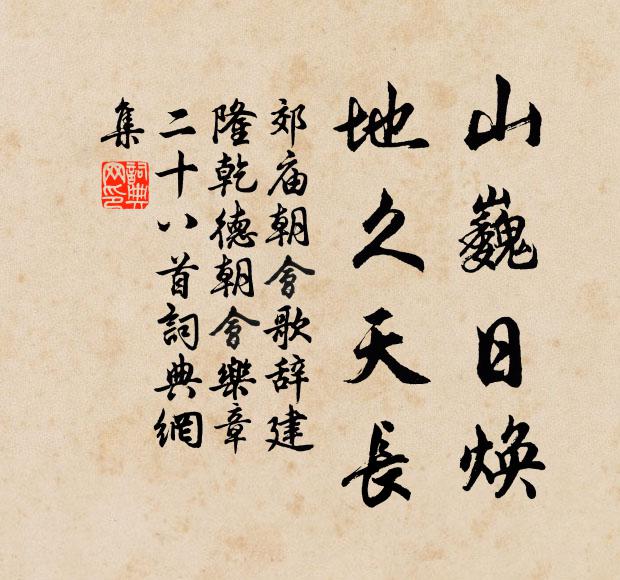 山巍日煥
地久天長
郊庙朝會歌辞建
隆乾德朝會樂章
二十八首詞典網
集
詞典网印